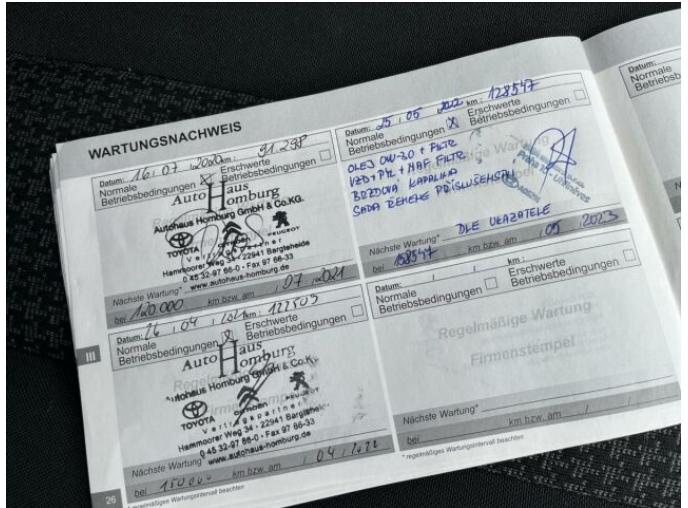 WARTUNGSNACHWEIS
Datum: 16 . 07 . 2020 km: 91.298
Normale Betriebsbedingungen X Erschwerte Betriebsbedingungen
Auto Haus Homburg
Autohaus Homburg GmbH & Co.KG.
TOYOTA CITROËN PEUGEOT
Vertragspartner
Hammoorer Weg 34 - 22941 Bargteheide
0 45 32-97 66-0 - Fax 97 66-33
www.autohaus-homburg.de
Nächste Wartung*
bei 120.000 km bzw. am / 07 / 2021
Datum: 26 . 04 . km: 122503
Normale Betriebsbedingungen Erschwerte Betriebsbedingungen
Auto Haus Homburg
Autohaus Homburg GmbH & Co.K
TOYOTA PEUGEOT
Vertragspartner
Hammoorer Weg 34 - 22941 Bargtehei
0 45 32-97 66-0 - Fax 97 66-33
www.autohaus-homburg.de
Nächste Wartung
bei 150000 km bzw. am / 04 / 2022
* regelmäßiges Wartungsintervall beachten
26
III
Datum: 25 . 05 2022 km: 128547
Normale Betriebsbedingungen X Erschwerte Betriebsbedingungen
OLEJ 0W-30 + FILTR
VZD + PYL + HBF FILTR
BRZDOVÁ KAPALINA
SADA ŘEMENE PŘÍSLUŠENSTVÍ
Nächste Wartung* DLE UKAZATELE
bei 158547 km bzw. am / 05 / 2023
Datum: / / km:
Normale Betriebsbedingungen Erschwerte Betriebsbedingungen
Regelmäßige Wartung
Firmenstempel
Nächste Wartung*
bei km bzw. am / /
* regelmäßiges Wartungsintervall beachten
Datum:
Normale